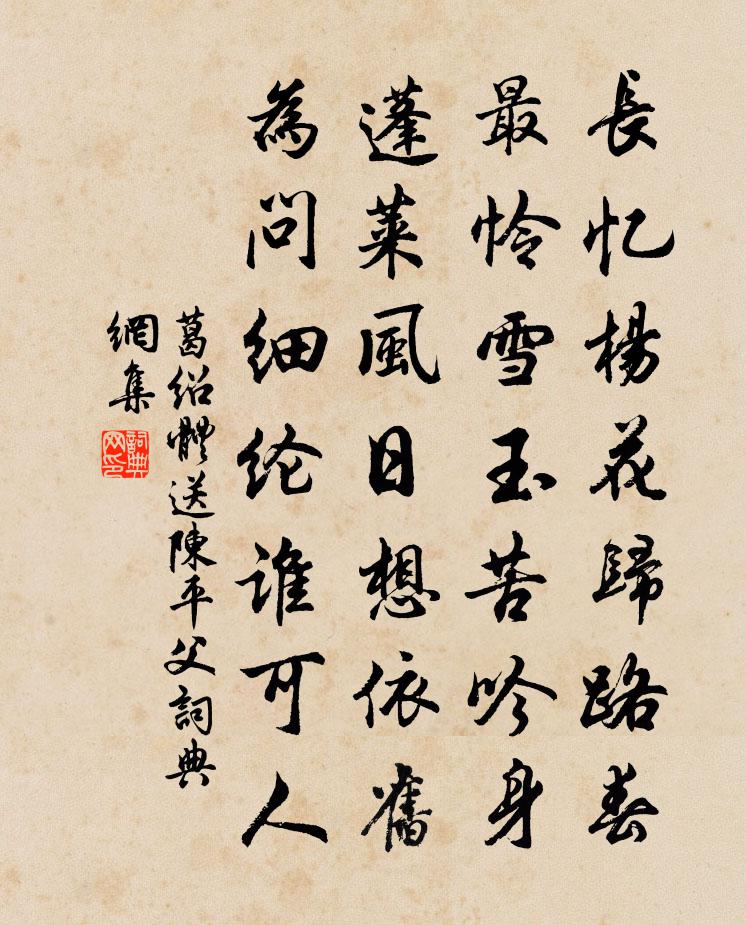 長忆楊花歸路春
最怜雪玉苦吟身
蓬莱風日想依舊
為問细纶谁可人
葛绍體送陳平父詞典
網集
詞典网印